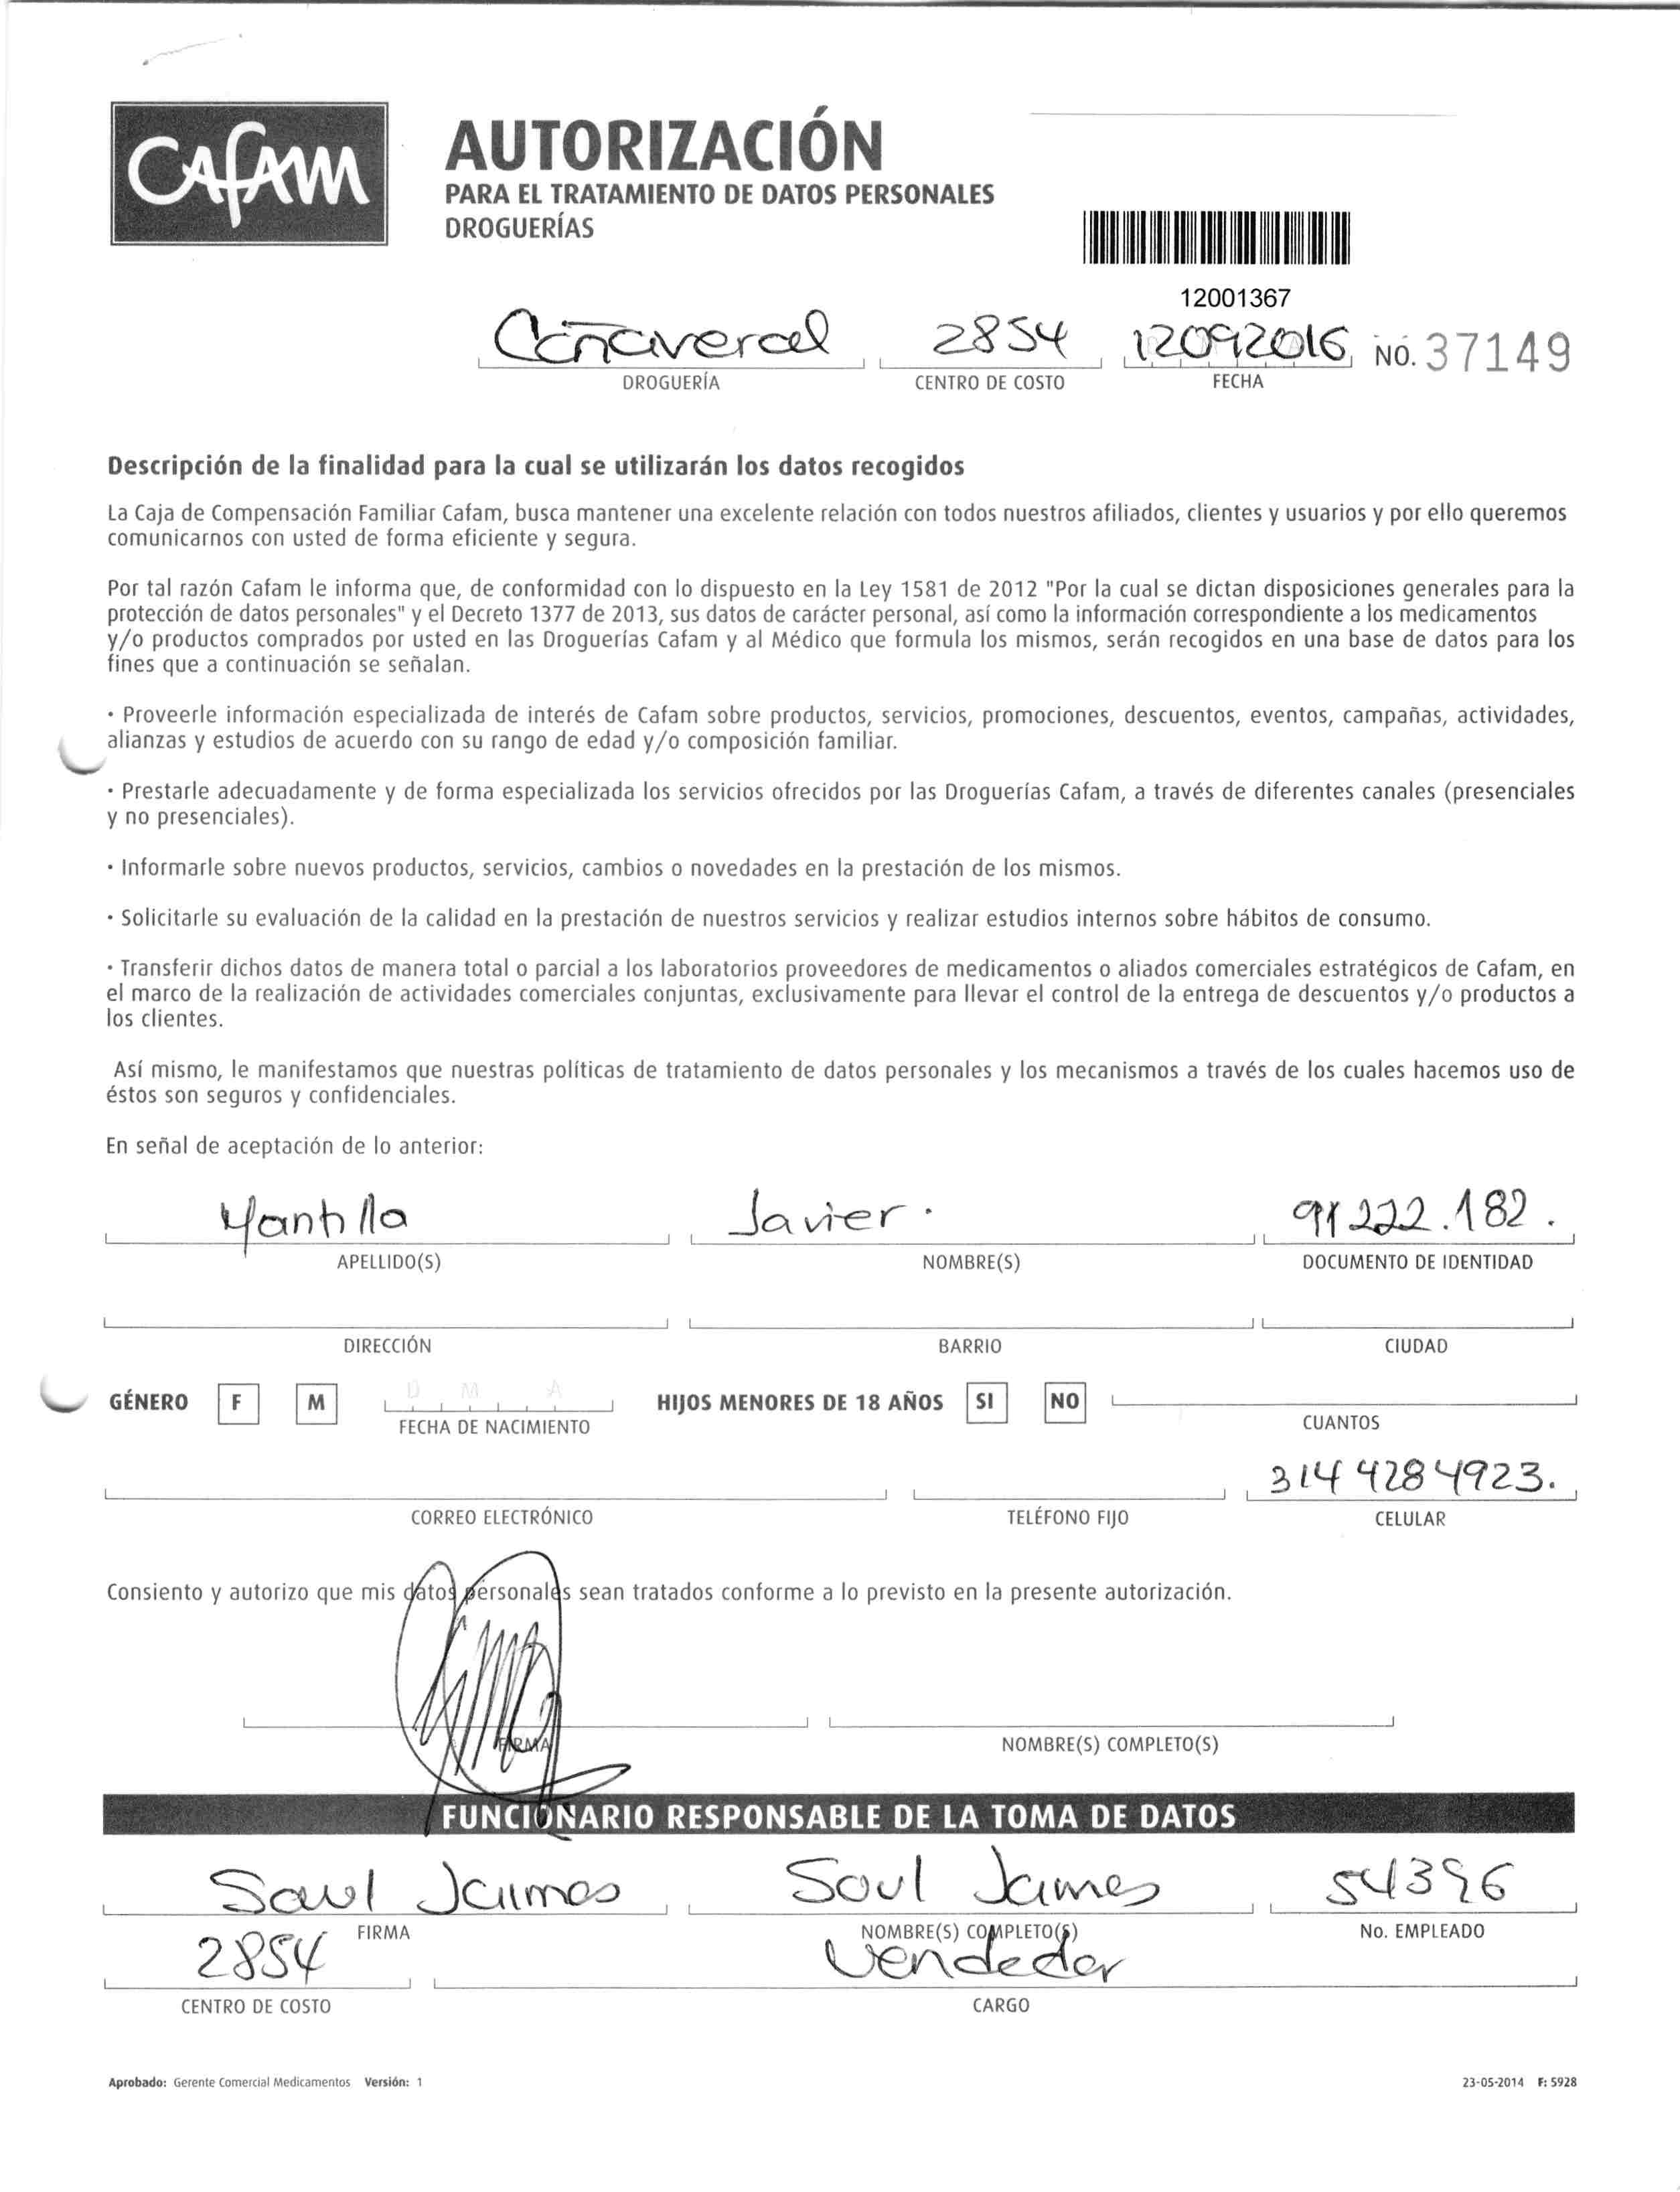 CAFAM
AUTORIZACIÓN
PARA EL TRATAMIENTO DE DATOS PERSONALES
DROGUERÍAS
12001367
Cañaveral 2854 12092016 NO. 37149
DROGUERÍA CENTRO DE COSTO FECHA
Descripción de la finalidad para la cual se utilizarán los datos recogidos
La Caja de Compensación Familiar Cafam, busca mantener una excelente relación con todos nuestros afiliados, clientes y usuarios y por ello queremos
comunicarnos con usted de forma eficiente y segura.
Por tal razón Cafam le informa que, de conformidad con lo dispuesto en la Ley 1581 de 2012 "Por la cual se dictan disposiciones generales para la
protección de datos personales" y el Decreto 1377 de 2013, sus datos de carácter personal, así como la información correspondiente a los medicamentos
y/o productos comprados por usted en las Droguerías Cafam y al Médico que formula los mismos, serán recogidos en una base de datos para los
fines que a continuación se señalan.
· Proveerle información especializada de interés de Cafam sobre productos, servicios, promociones, descuentos, eventos, campañas, actividades,
alianzas y estudios de acuerdo con su rango de edad y/o composición familiar.
· Prestarle adecuadamente y de forma especializada los servicios ofrecidos por las Droguerías Cafam, a través de diferentes canales (presenciales
y no presenciales).
· Informarle sobre nuevos productos, servicios, cambios o novedades en la prestación de los mismos.
· Solicitarle su evaluación de la calidad en la prestación de nuestros servicios y realizar estudios internos sobre hábitos de consumo.
· Transferir dichos datos de manera total o parcial a los laboratorios proveedores de medicamentos o aliados comerciales estratégicos de Cafam, en
el marco de la realización de actividades comerciales conjuntas, exclusivamente para llevar el control de la entrega de descuentos y/o productos a
los clientes.
Así mismo, le manifestamos que nuestras políticas de tratamiento de datos personales y los mecanismos a través de los cuales hacemos uso de
éstos son seguros y confidenciales.
En señal de aceptación de lo anterior:
Mantilla Javier. 91222.182.
APELLIDO(S) NOMBRE(S) DOCUMENTO DE IDENTIDAD
DIRECCIÓN BARRIO CIUDAD
D M A
GÉNERO F M HIJOS MENORES DE 18 AÑOS SI NO
FECHA DE NACIMIENTO CUANTOS
314 4284923.
CORREO ELECTRÓNICO TELÉFONO FIJO CELULAR
Consiento y autorizo que mis datos personales sean tratados conforme a lo previsto en la presente autorización.
FIRMA NOMBRE(S) COMPLETO(S)
FUNCIONARIO RESPONSABLE DE LA TOMA DE DATOS
Saul Jaimes Saul Jaimes 54396
FIRMA NOMBRE(S) COMPLETO(S) No. EMPLEADO
2854 Vendedor
CENTRO DE COSTO CARGO
Aprobado: Gerente Comercial Medicamentos Versión: 1 23-05-2014 F: 5928